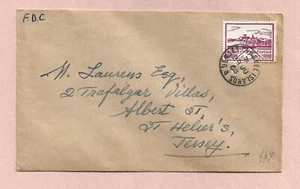 F.D.C.
W. Laurens Esq,
2 Trafalgar Villas,
Albert St,
St Helier's,
Jersey.